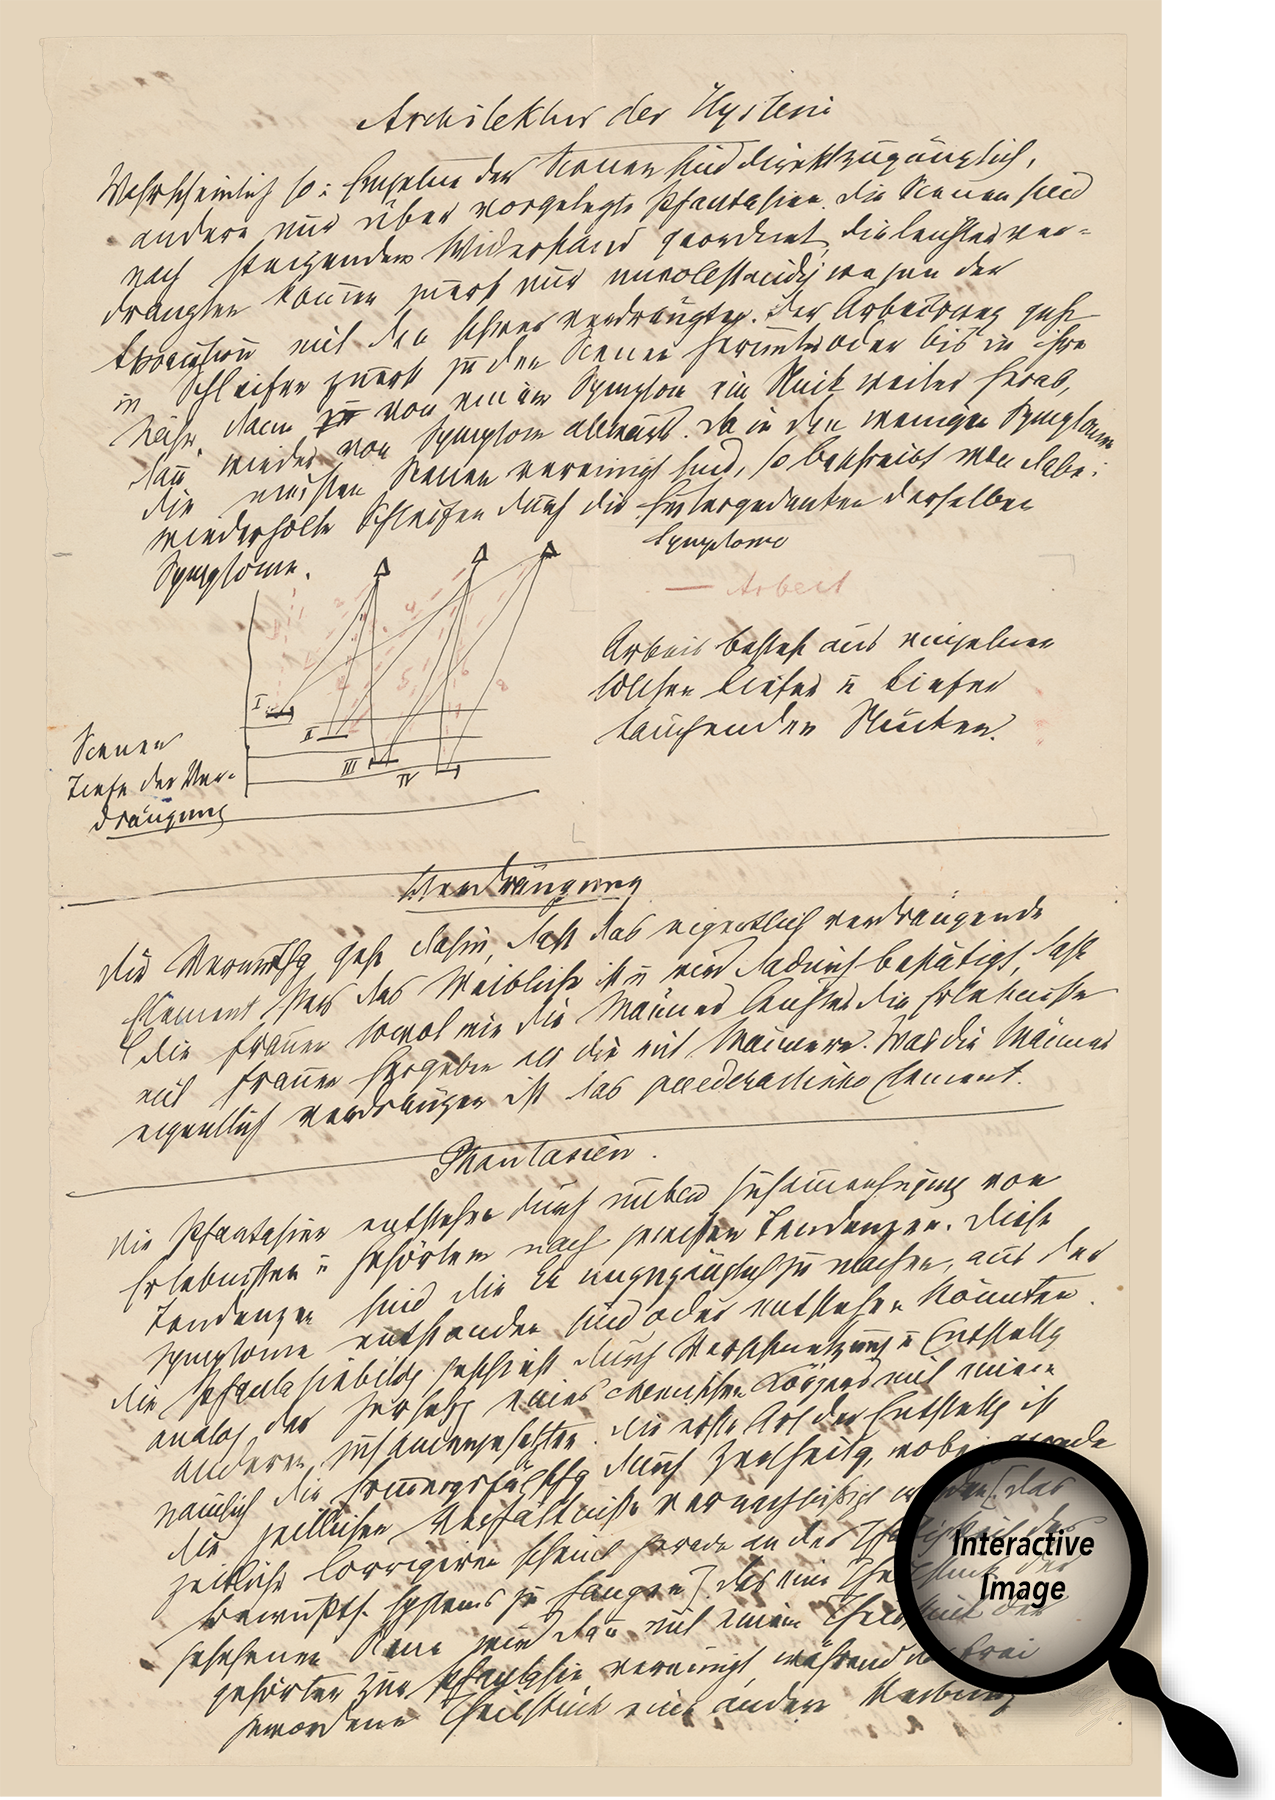 Architektur der Hysterie
Wahrscheinlich so: Einzelne der Scenen sind direkt zugänglich,
andere nur über vorgelegte Phantasien. Die Scenen sind
nach steigendem Widerstand geordnet, die leichter ver-
drängten kom̄en zuerst nur unvollständig wegen der
Association mit den schwer verdrängten. Der Arbeitsweg geht
in Schleifen zuerst zu den Scenen herunter oder bis in ihre
Nähe, dann von einem Symptom ein Stück weiter herab,
dan̄ wieder von Symptom abwärts. Da in den wenigen Symptomen
die meisten Scenen vereinigt sind, so beschreibt man dabei
wiederholte Schleifen durch die Hintergedanken derselben
Symptome.
Symptome
— Arbeit
Arbeit besteht aus einzelnen
solchen tiefer u tiefer
tauchenden Stücken.
I
II
III
IV
Scenen
Tiefe der Ver-
drängung
Verdrängung
Die Vermuthg geht dahin, daß das eigentlich verdrängende
Element stets das Weibliche ist u wird dadurch bestätigt, daß
die Frauen sowol wie die Män̄er leichter die Erlebnisse
mit Frauen hergeben als die mit Män̄ern. Was die Män̄er
eigentlich verdrängen ist das paederastische Element.
Phantasien.
Die Phantasien entstehen durch unbew Zusam̄enfügung von
Erlebnissen u Gehörtem nach gewissen Tendenzen. Diese
Tendenzen sind die Er unzugänglich zu machen, aus der
Symptome entstanden sind oder entstehen könnten.
Die Phantasiebildg geschieht durch Verschmelzung u Entstellg
analog der Zersetzg eines chemischen Körpers mit einem
anderen zusam̄engesetzten. Die erste Art der Entstellg ist
nämlich die Erin̄erungsfälschg durch Zertheilg, wobei gerade
die zeitlichen Verhältnisse vernachläßigt werden [das
zeitliche Corrigiren scheint gerade an der Thätigkeit des
Bewußts. systems zu hängen]. Das eine Theilstück der
gesehenen Scene wird dan̄ mit einem Theilstück der
gehörten zur Phantasie vereinigt, während das frei
gewordene Theilstück eine andere Verbindg
Interactive
Image